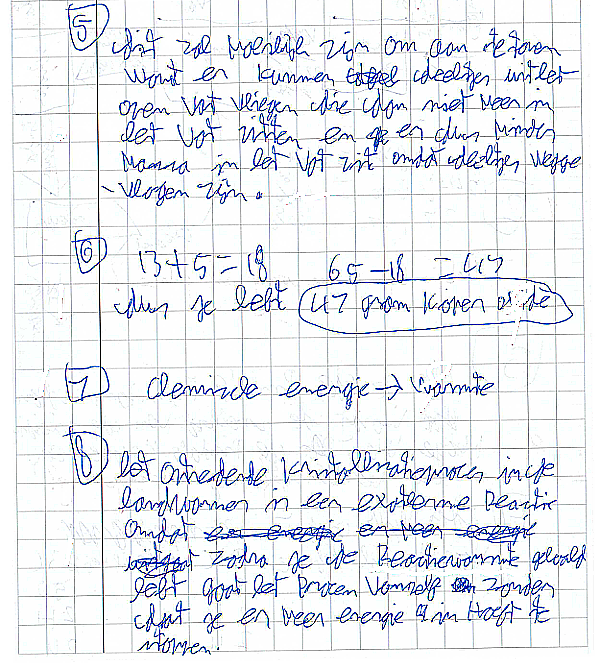 5
dit zal moeilijk zijn om aan te tonen
want er kunnen deeltjes uit het
open vat vliegen die dan niet meer in
het vat zitten en er dus minder
massa in het vat zit omdat deeltjes wegge
vlogen zijn.
6 13+5=18 65-18 =47
dus je hebt 47 gram koper oxide
7 Chemische energie → warmte
8 het omkerende kristallisatieproces in de
handwarmer is een exotherme reactie
omdat er energie er meer energie
zodra je de reactiewarmte gehaald
hebt gaat het proces vanzelf zonder
dat je er meer energie in hoeft te
stoppen.